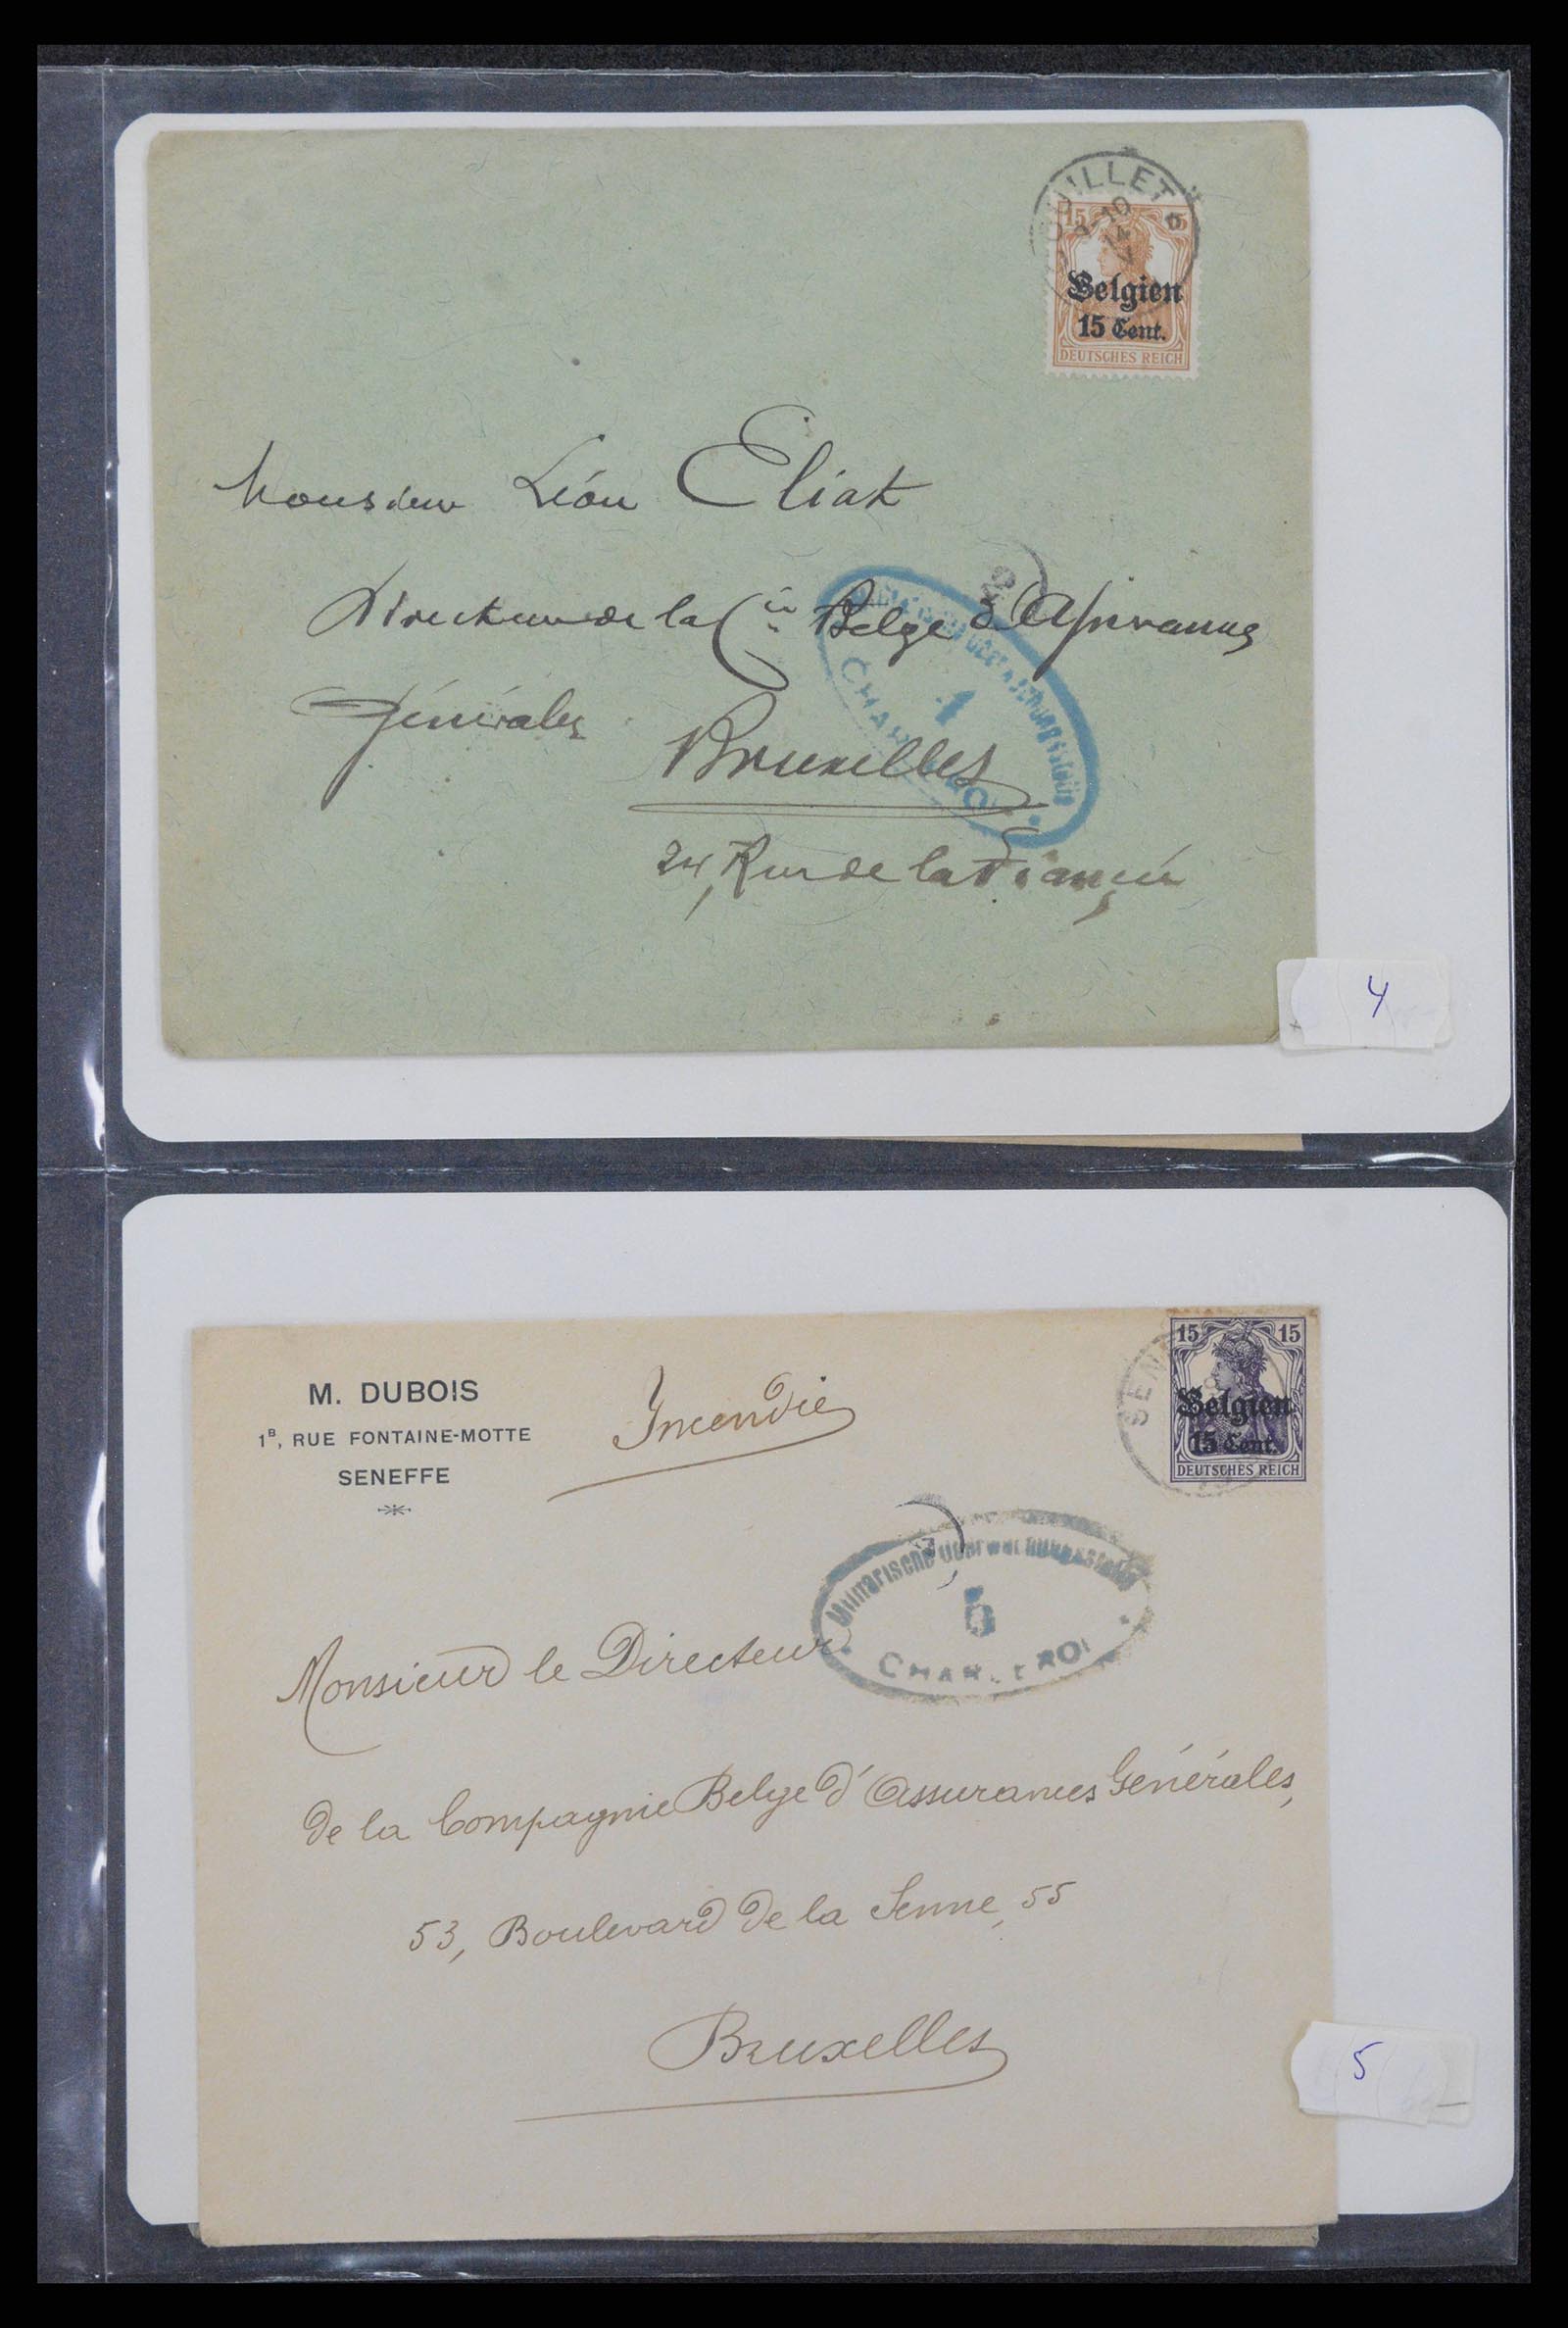 OUILLET
8-10
14
15 15
Belgien
15 Cent.
DEUTSCHES REICH
Monsieur Léon Eliat
Directeur de la Cie Belge d'Assurances
Générales
Bruxelles
24, Rue de la Fiancée
Militärische Überwachungsstelle
1
CHARLEROI
4
M. DUBOIS
1B, RUE FONTAINE-MOTTE
SENEFFE
Incendie
SENE
15 15
Belgien
15 Cent.
DEUTSCHES REICH
Militärische Überwachungsstelle
5
CHARLEROI
Monsieur le Directeur
de la Compagnie Belge d'Assurances Générales,
53, Boulevard de la Senne, 55
Bruxelles
5